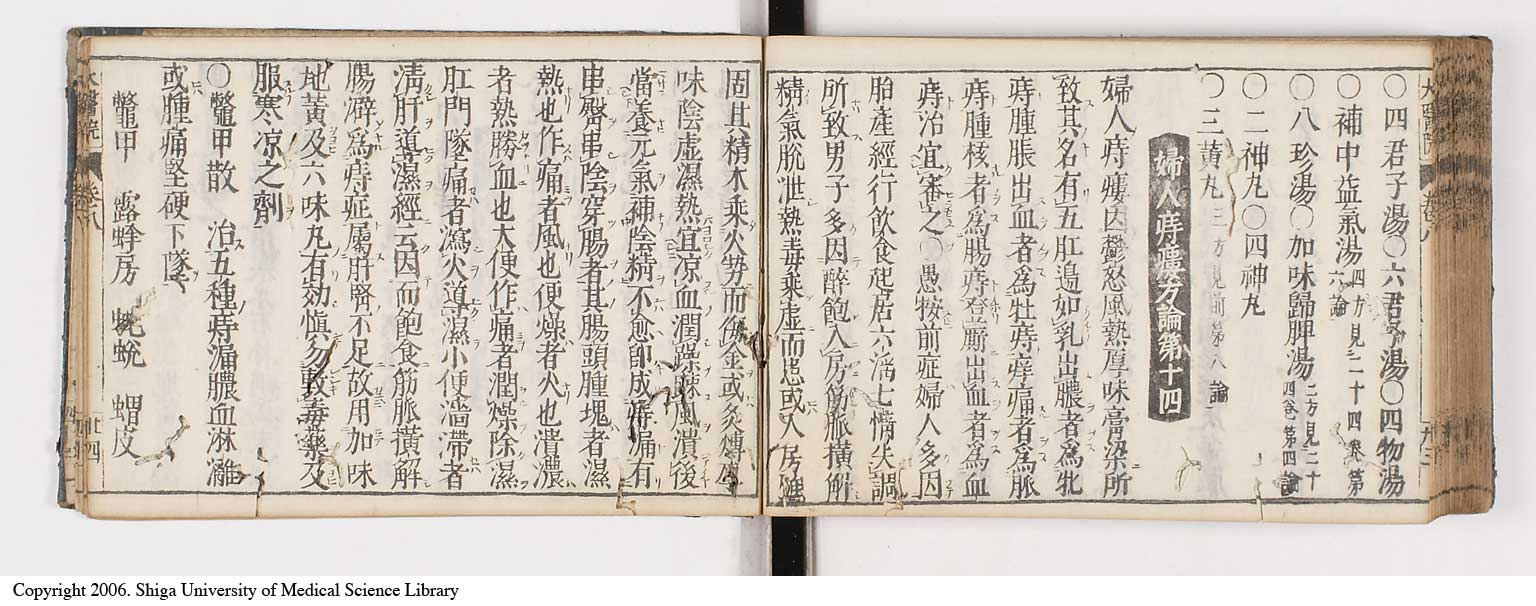 〇四君子湯〇六君子湯〇四物湯
〇補中益氣湯 四方見二十四卷第六論
〇八珍湯〇加味歸脾湯 二方見二十四卷第四論
〇二神丸〇四神丸
〇三黄丸 三方見前第八論
婦人痔瘻方論第十四
婦人痔瘻因鬱怒風熱厚味膏粱所
致其名有五肛邉如乳出膿者爲牝
痔腫脹出血者爲牡痔痒痛者爲脈
痔腫核者爲腸痔登厠出血者爲血
痔治宜審之〇愚按前症婦人多因
胎産經行飲食起居六淫七情失調
所致男子多因醉飽入房筋脈橫解
精氣脫泄熱毒乘虚而患或入房
周其精木乘火勢而侮金或炙煿
味陰虚濕熱宜凉血潤燥疎風潰後
當養元氣補陰精不愈即成痔漏有
串臀串陰穿腸者其腸頭腫塊者濕
熱也作痛者風也便燥者火也潰膿
者熱勝血也大便作痛者潤燥除濕
肛門墜痛者瀉火導濕小便濇滯者
淸肝道濕經云因而飽食筋脈橫解
腸澼爲痔症屬肝腎不足故用加味
地黄及六味丸有効愼勿敷毒藥及
服寒凉之劑
〇鼈甲散 治五種痔漏膿血淋漓
或腫痛堅硬下墜
鼈甲 露蜂房 蛇蛻 蝟皮
卷八
Copyright 2006. Shiga University of Medical Science Library